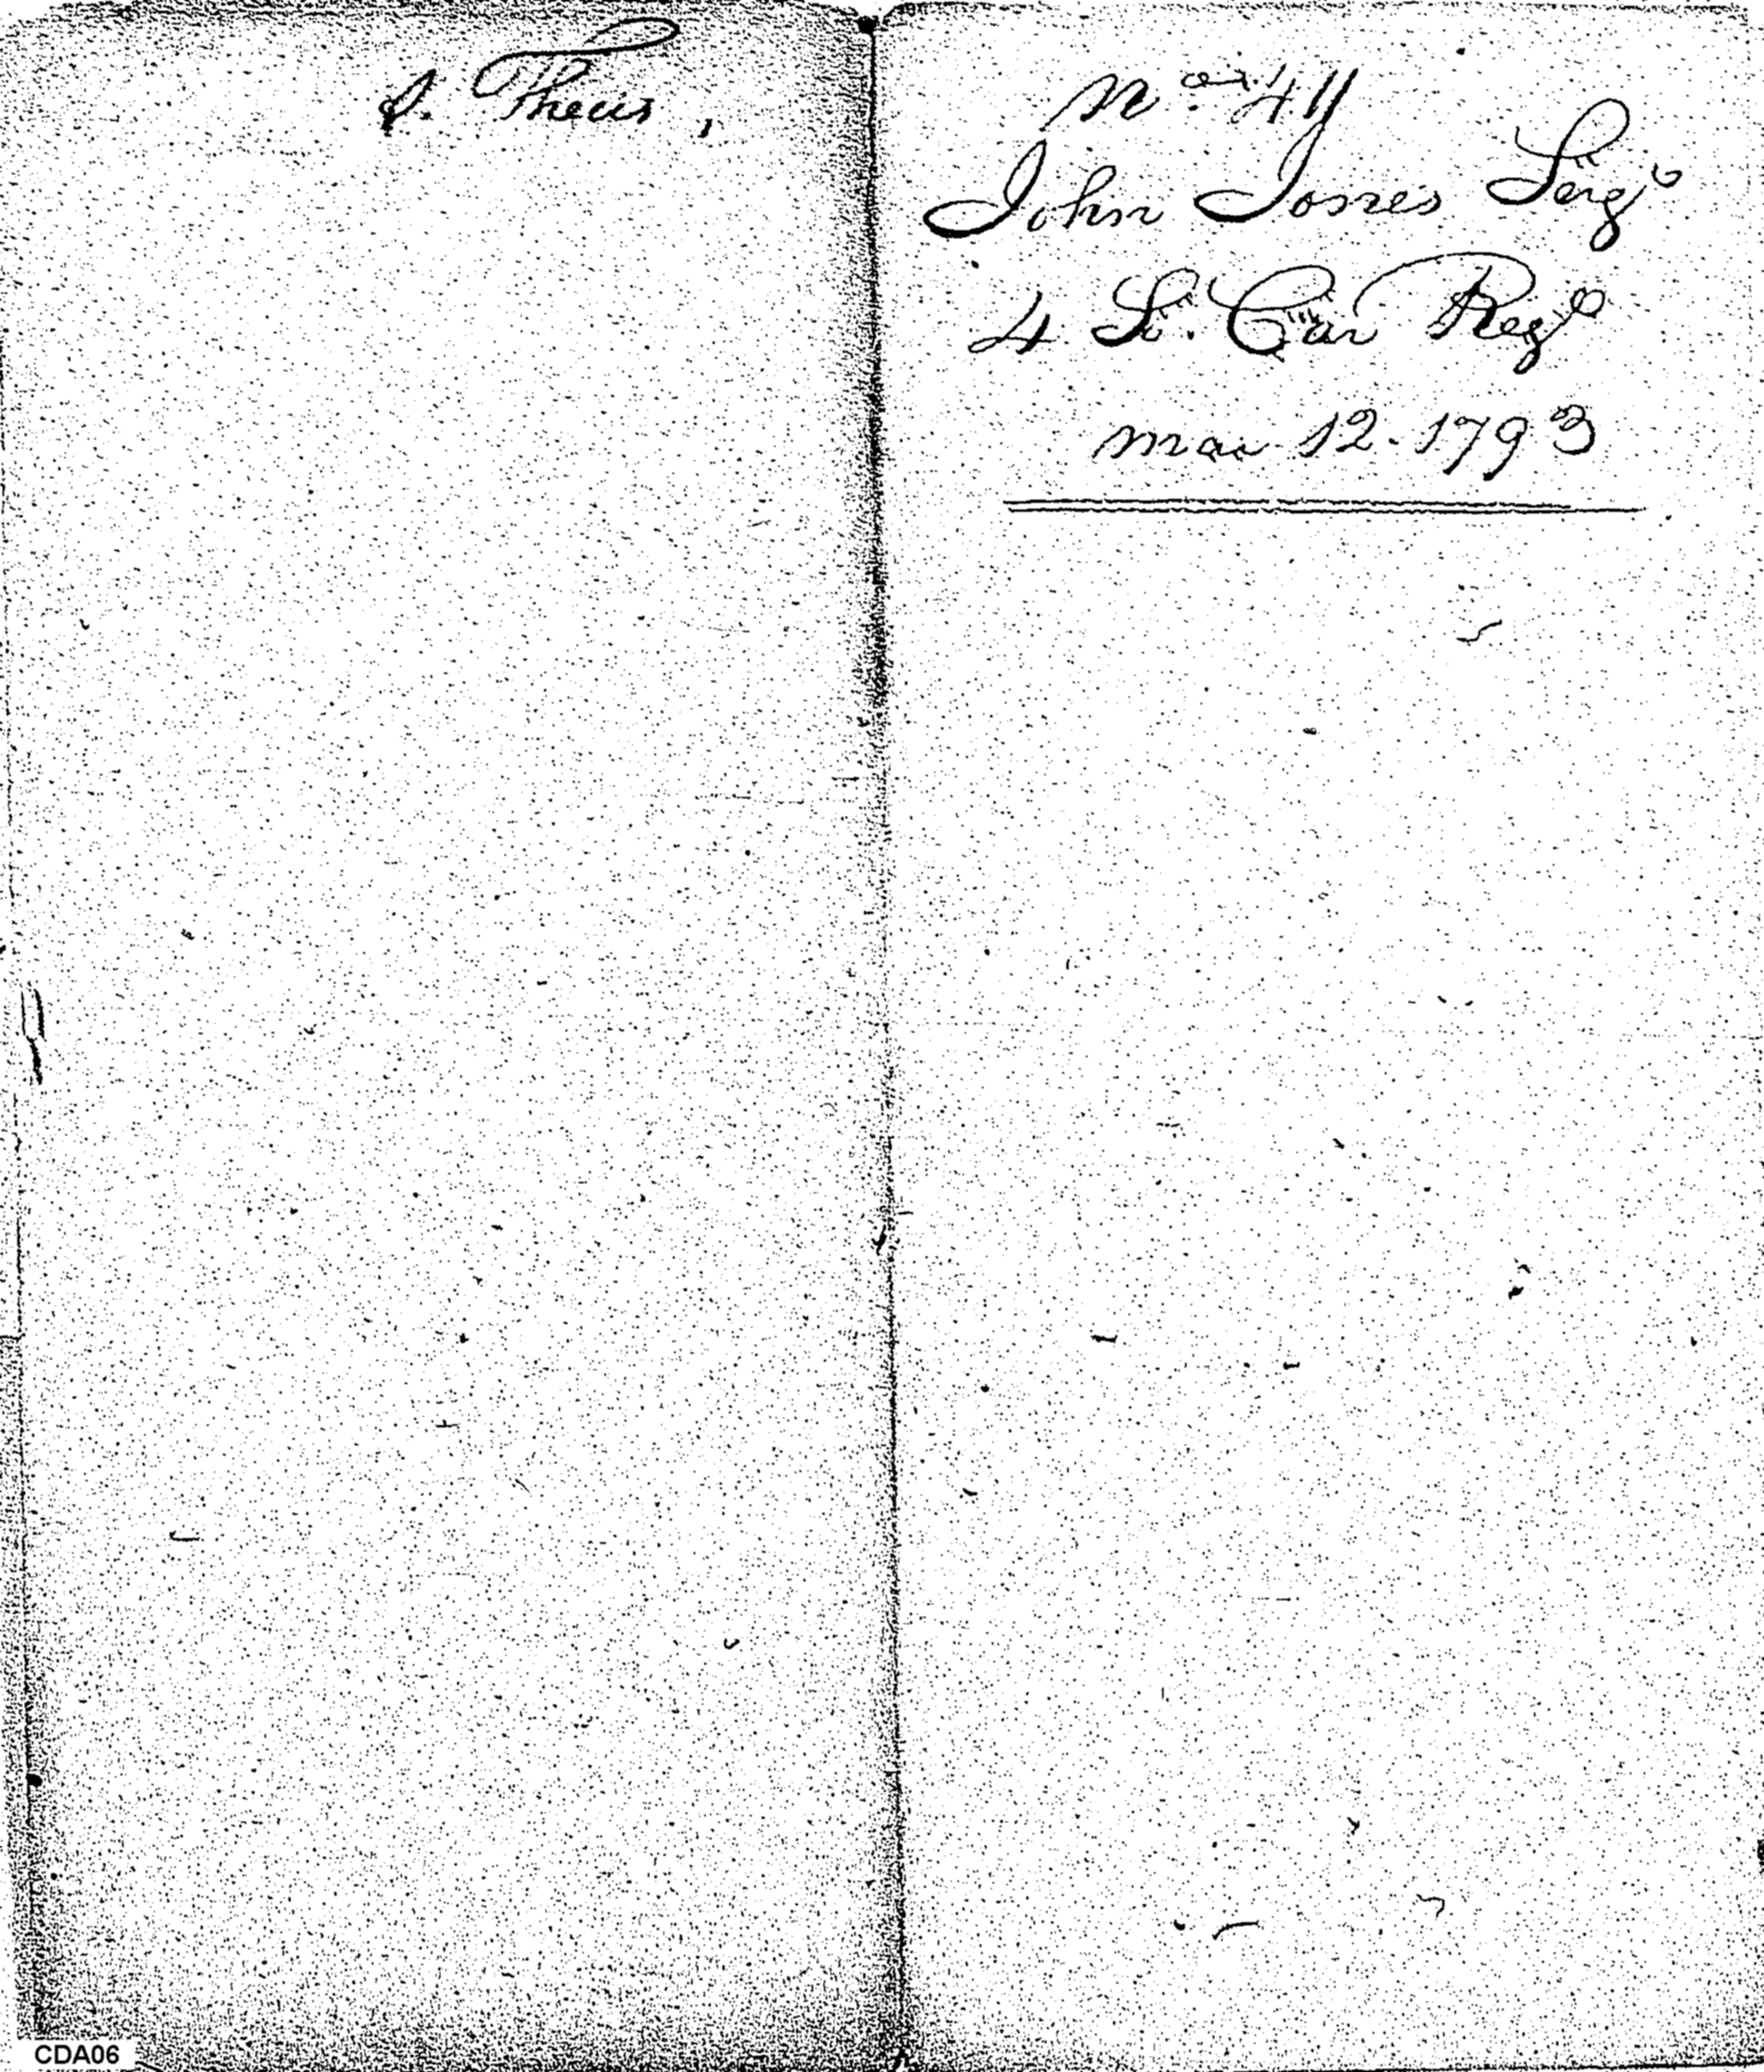 S. Theus,
No. 411
John Jones Serjt
4 So. Car Regt
Mar 12. 1793
CDA06